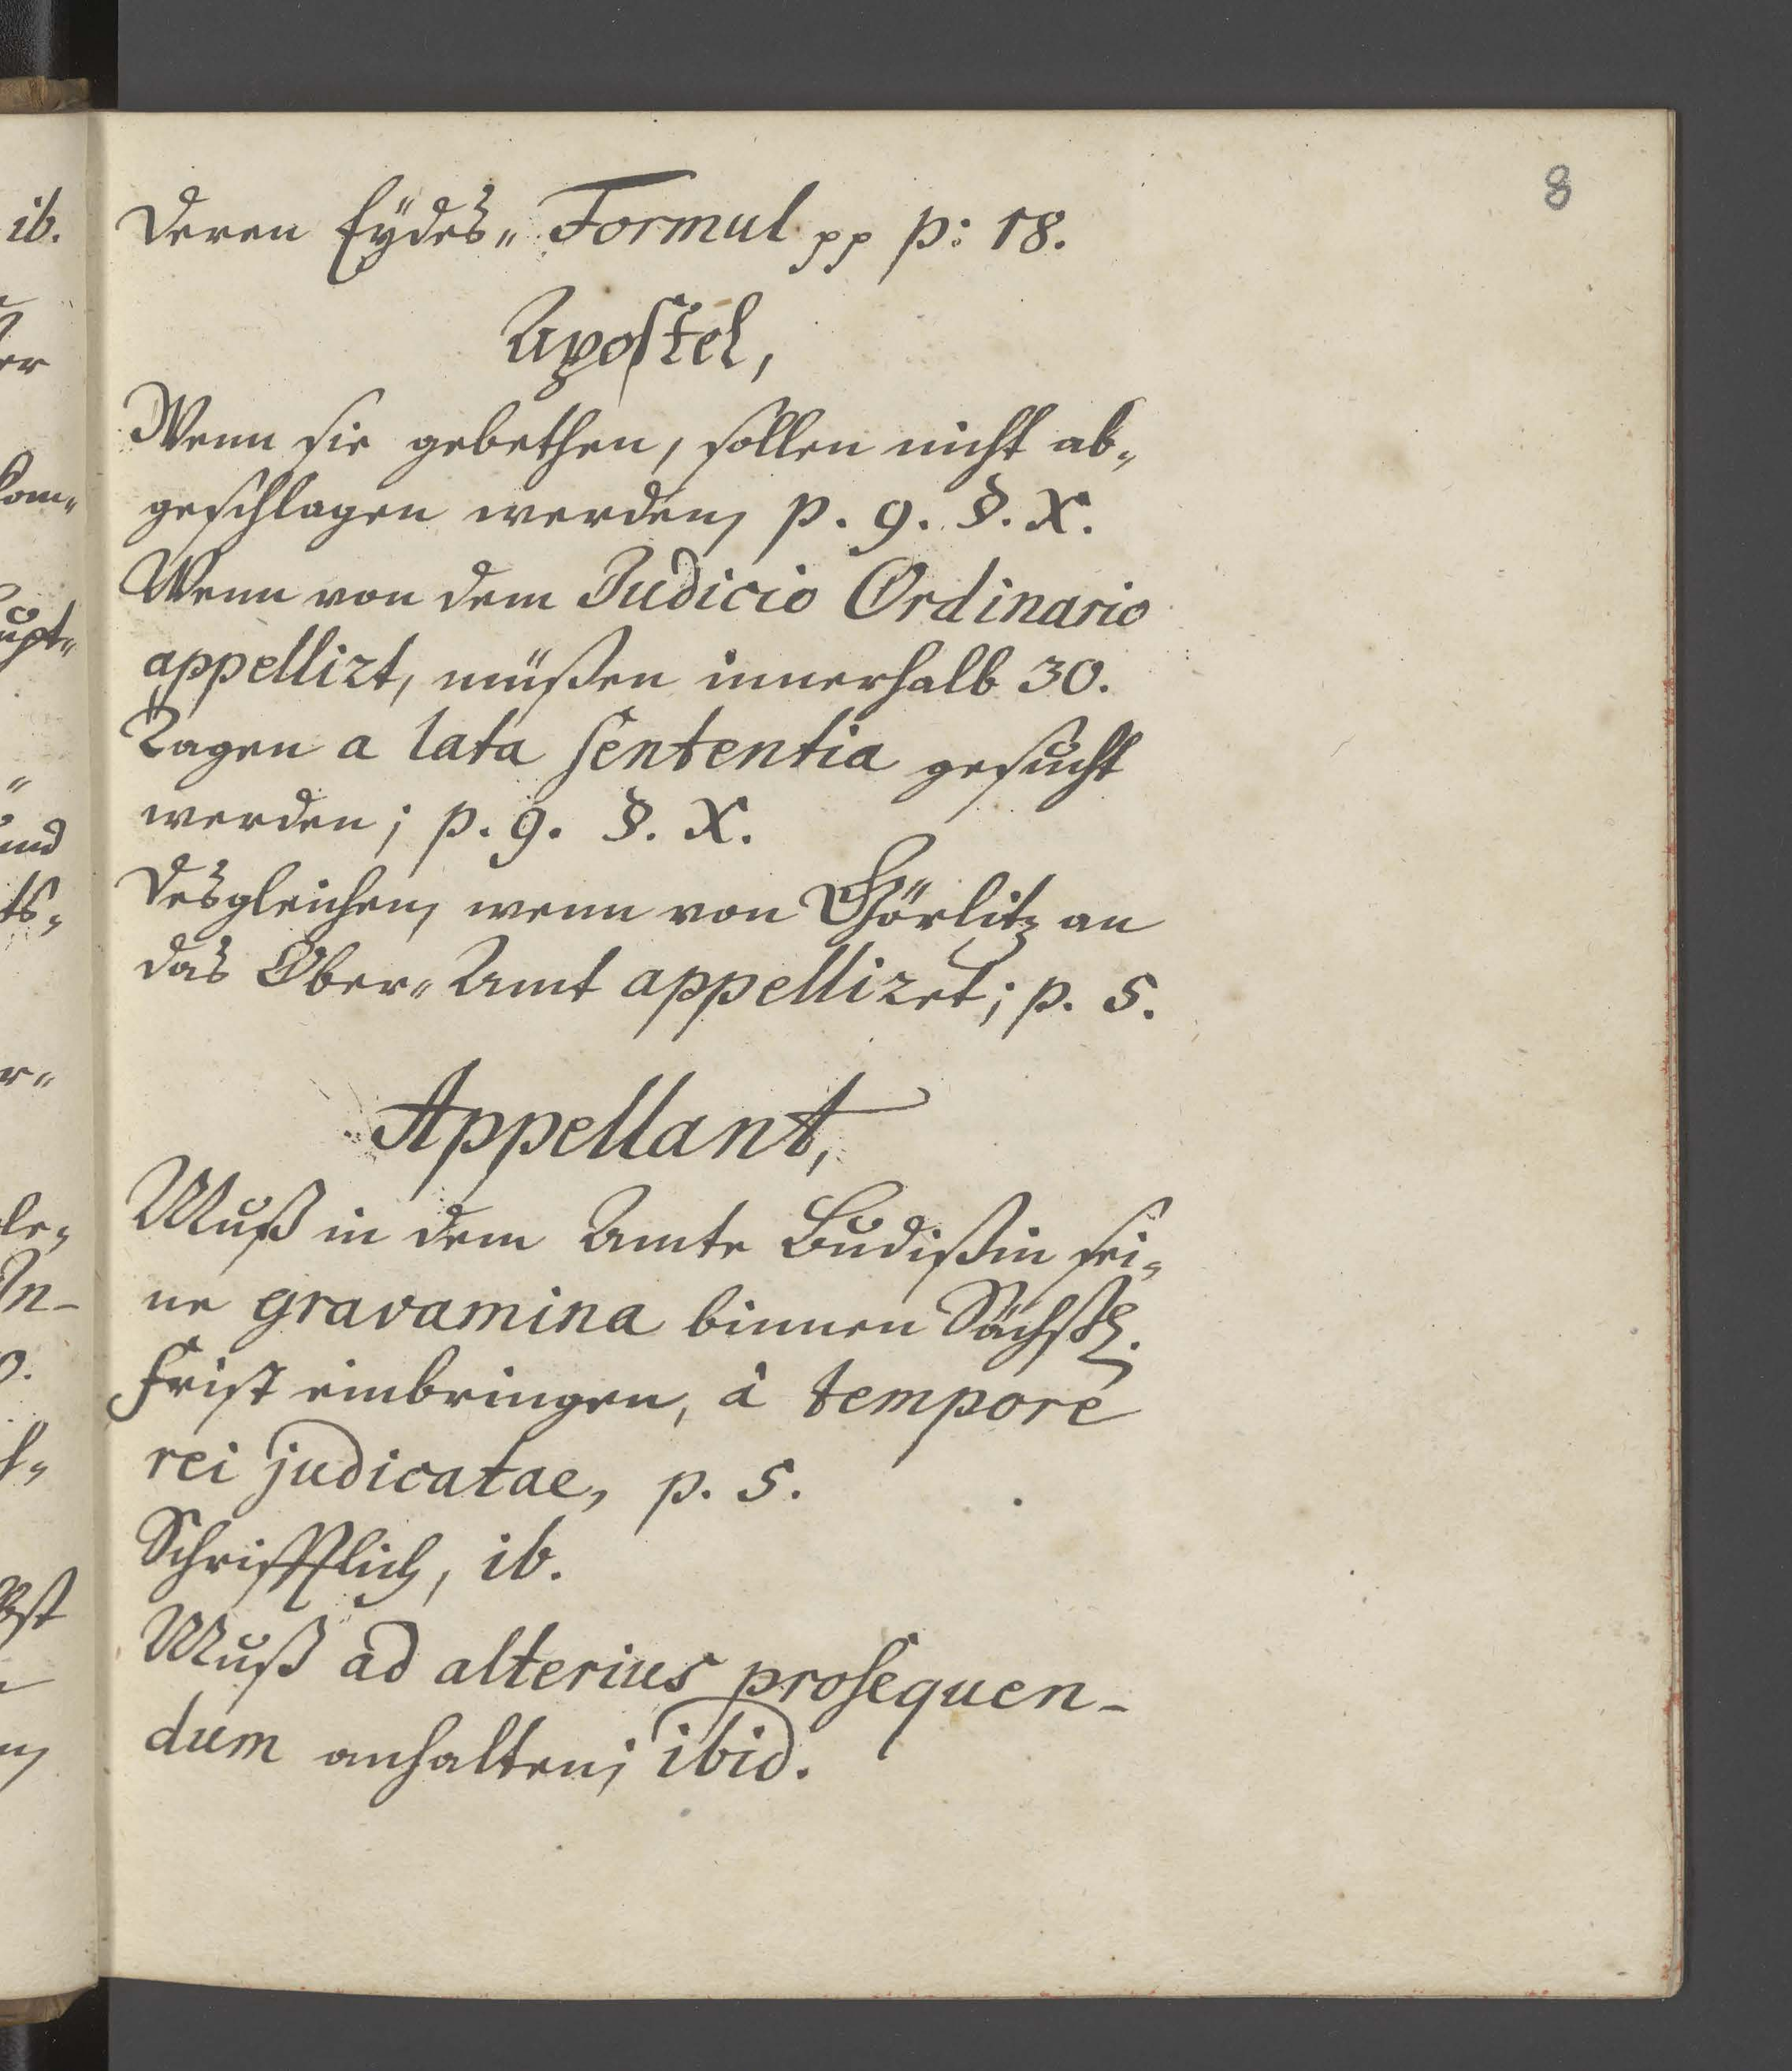 8
Deren Eÿdes„ Formul pp p: 18.
Apostel,
Wenn sie gebethen, sollen nicht ab„
geschlagen werden, p. 9. §. X.
Wenn von dem Judicio Ordinario
appellirt, müßen innerhalb 30.
Tagen a lata sententia gesucht
werden; p. 9. §. X.
Desgleichen, wenn von Görlitz an
das Ober„ Amt appelliret; p. 5.
Appellant,
Muß in dem Amte Budißin sei„
ne gravamina binnen Sächß.
Frist einbringen, à tempore
rei judicatae, p. 5.
Schrifftlich, ib.
Muß ad alterius prosequen-
dum anhalten; ibid.